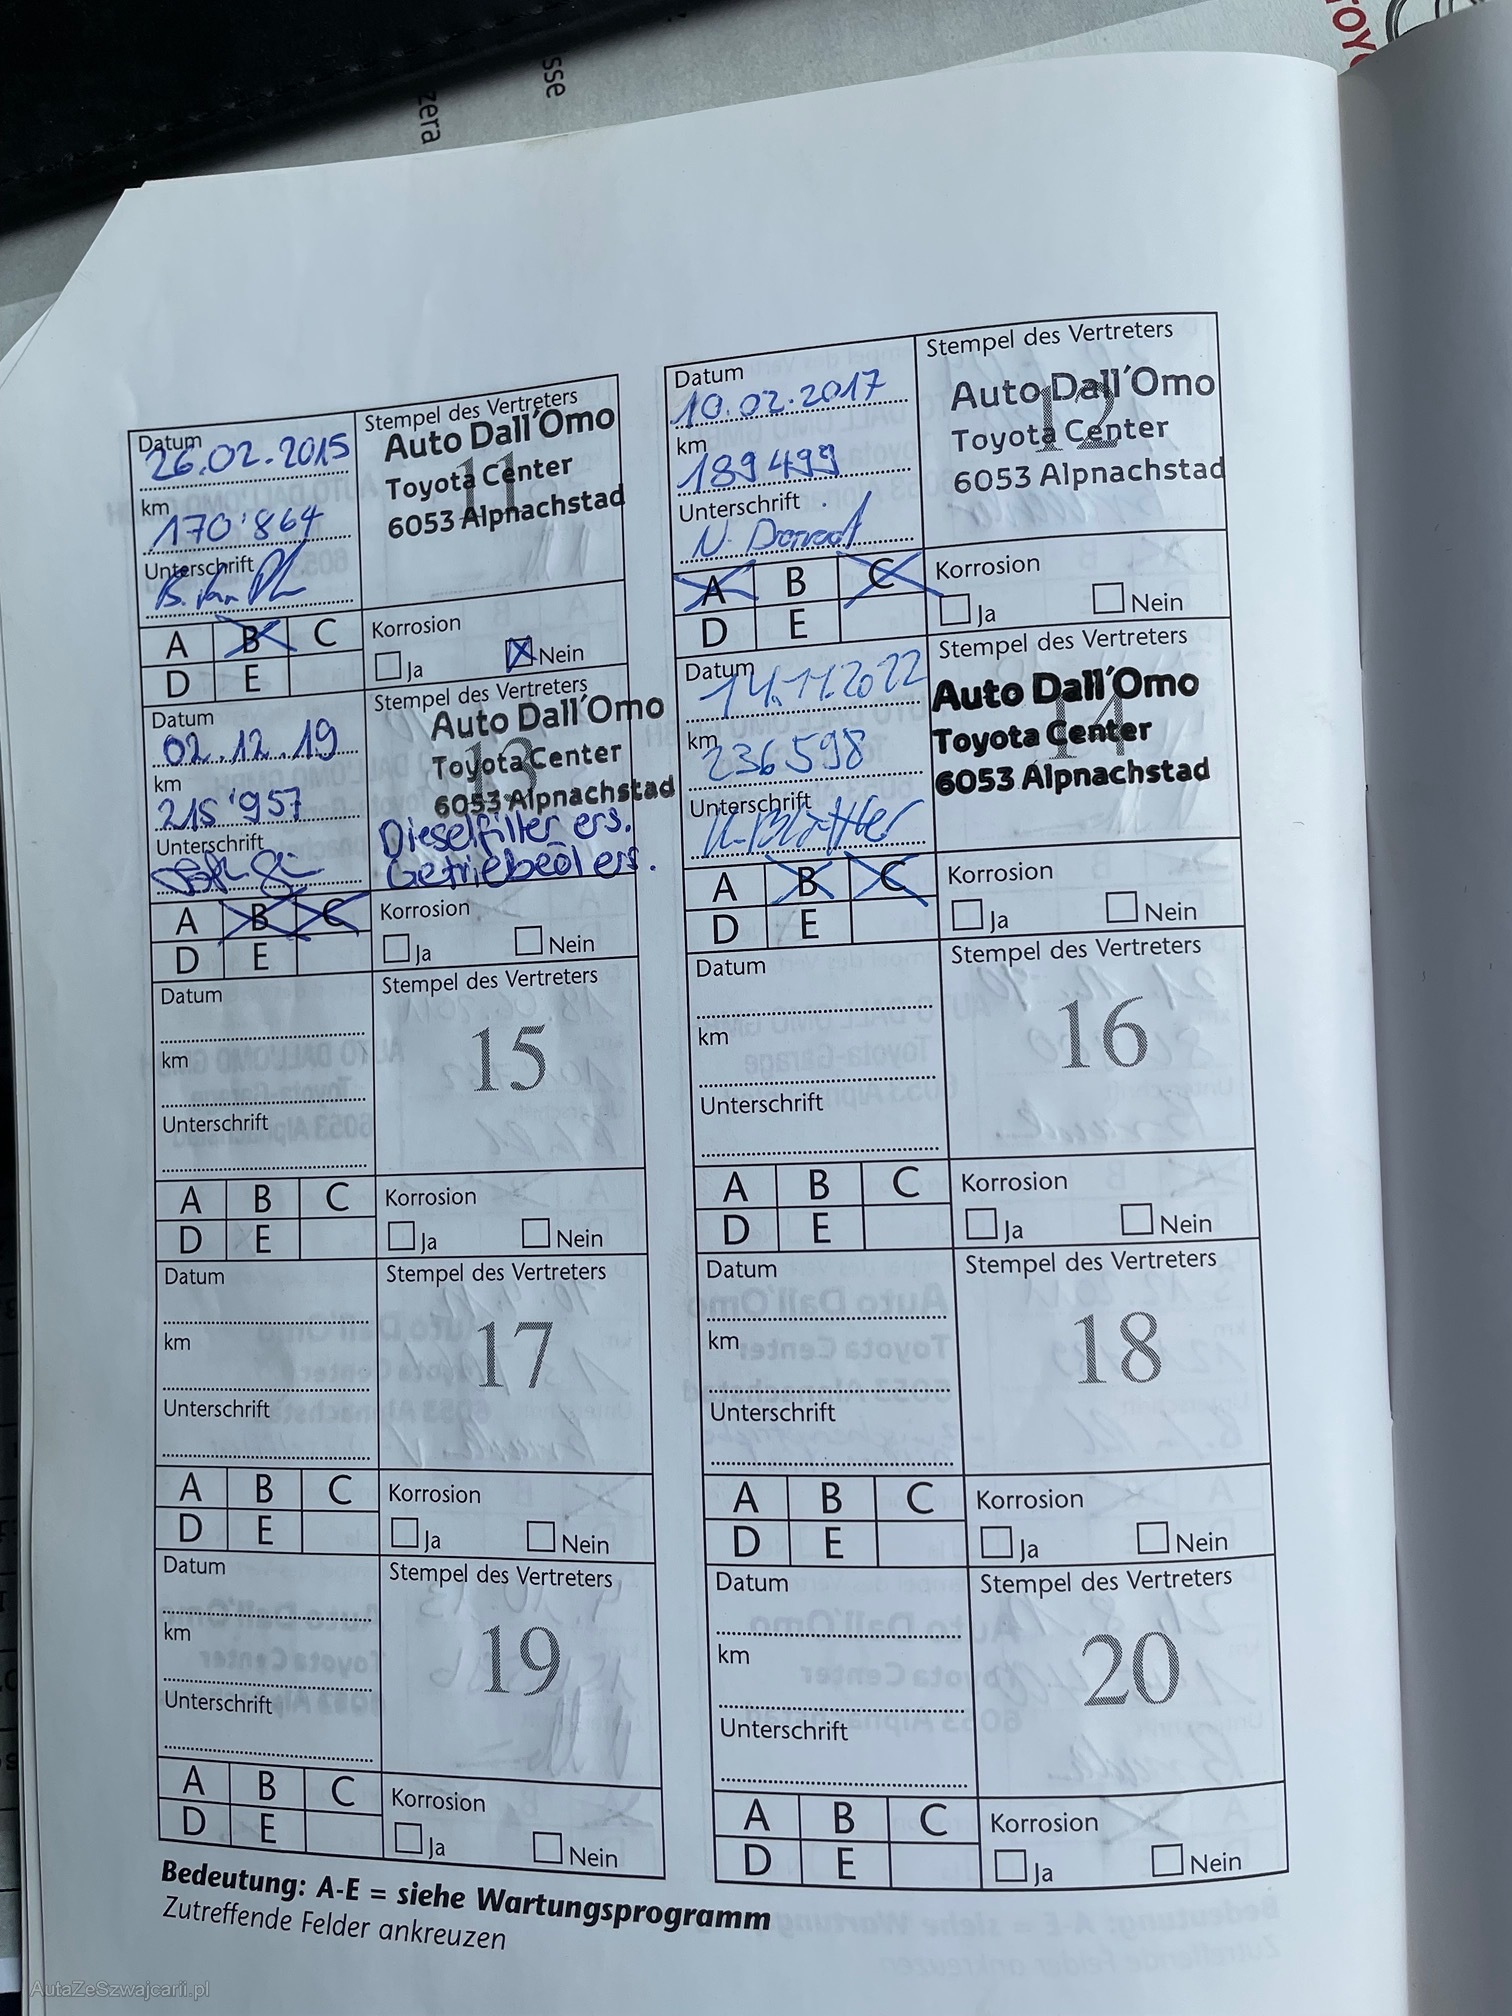 TOYO
sse
zera
Datum
26.02.2015
km
170'864
Unterschrift
A B C
D E
Stempel des Vertreters
11
Auto Dall'Omo
Toyota Center
6053 Alpnachstad
Korrosion
Ja Nein
Datum
10.02.2017
km
189499
Unterschrift
A B C
D E
Stempel des Vertreters
12
Auto Dall'Omo
Toyota Center
6053 Alpnachstad
Korrosion
Ja Nein
Datum
02.12.19
km
215'957
Unterschrift
A B C
D E
Stempel des Vertreters
13
Auto Dall'Omo
Toyota Center
6053 Alpnachstad
Dieselfilter ers.
Getriebeöl ers.
Korrosion
Ja Nein
Datum
14.11.2022
km
236598
Unterschrift
A B C
D E
Stempel des Vertreters
14
Auto Dall'Omo
Toyota Center
6053 Alpnachstad
Korrosion
Ja Nein
Datum
km
Unterschrift
A B C
D E
Stempel des Vertreters
15
Korrosion
Ja Nein
Datum
km
Unterschrift
A B C
D E
Stempel des Vertreters
16
Korrosion
Ja Nein
Datum
km
Unterschrift
A B C
D E
Stempel des Vertreters
17
Korrosion
Ja Nein
Datum
km
Unterschrift
A B C
D E
Stempel des Vertreters
18
Korrosion
Ja Nein
Datum
km
Unterschrift
A B C
D E
Stempel des Vertreters
19
Korrosion
Ja Nein
Datum
km
Unterschrift
A B C
D E
Stempel des Vertreters
20
Korrosion
Ja Nein
Bedeutung: A-E = siehe Wartungsprogramm
Zutreffende Felder ankreuzen
AutaZeSzwajcarii.pl